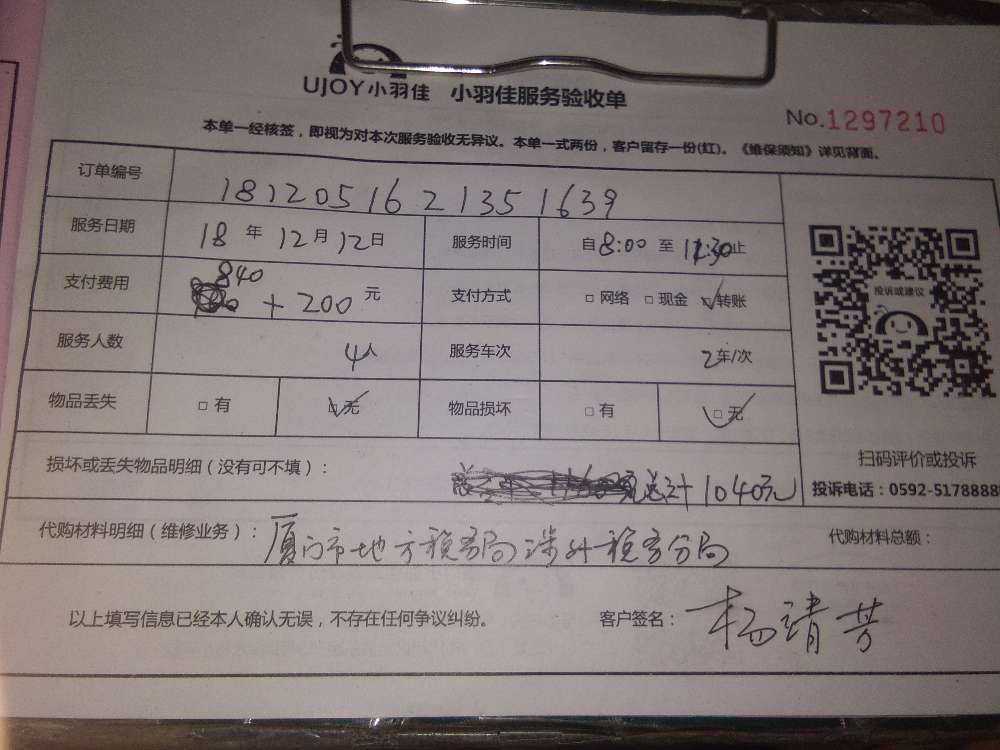 UJOY小羽佳 小羽佳服务验收单
No.1297210
本单一经核签，即视为对本次服务验收无异议。本单一式两份，客户留存一份(红)。《维保须知》详见背面。
订单编号 1812051621351639
服务日期 18年12月12日 服务时间 自8:00至11:30止
支付费用 840+200元 支付方式 □网络 □现金 ☑转账
服务人数 4人 服务车次 2车/次
物品丢失 □有 ☑无 物品损坏 □有 ☑无
投诉或建议
损坏或丢失物品明细（没有可不填）： 总计1040元
扫码评价或投诉
投诉电话：0592-5178888
代购材料明细（维修业务）：厦门市地方税务局涉外税务分局 代购材料总额：
以上填写信息已经本人确认无误，不存在任何争议纠纷。 客户签名：杨靖芳